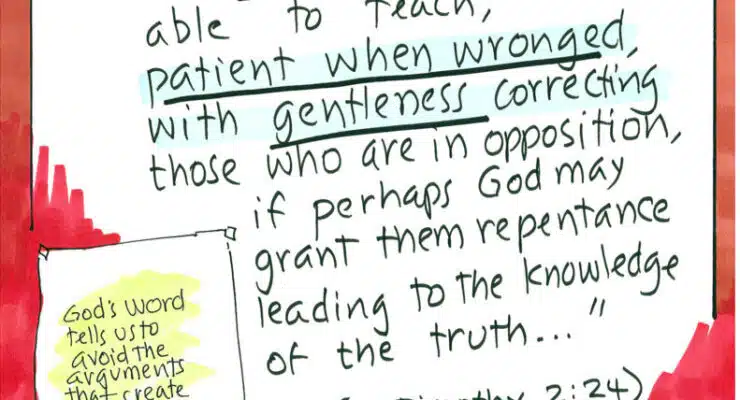 able to teach,
patient when wronged,
with gentleness correcting
those who are in opposition,
if perhaps God may
grant them repentance
leading to the knowledge
of the truth..."
2:24)
God's word
tells us to
avoid the
arguments
that create